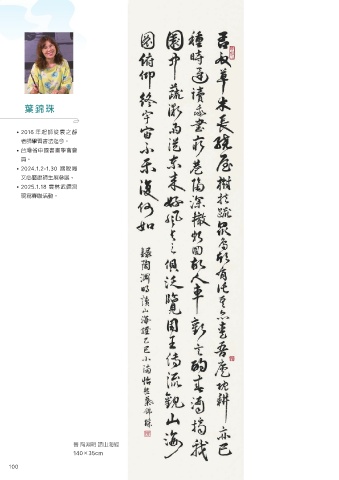 葉錦珠
• 2016 年起師從雲之薛
老師學習書法迄今。
• 台灣省中國書畫學會會
員。
• 2024.1.2-1.30
• 2025.1.18 雲林武德宮
現場揮毫活動。
孟夏草木長繞屋樹扶疏眾鳥欣有託吾亦愛吾廬既耕亦已
種時還讀我書窮巷隔深轍頗迴故人車歡言酌春酒摘我
園中蔬微雨從東來好風與之俱汎覽周王傳流觀山海
圖俯仰終宇宙不樂復何如
錄陶淵明讀山海經乙巳小滿 葉錦珠
晉 陶淵明 讀山海經
140×35cm
100